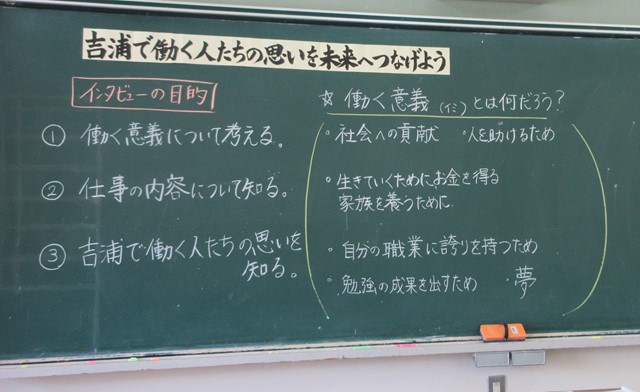 吉浦で働く人たちの思いを未来へつなげよう
インタビューの目的
① 働く意義について考える。
② 仕事の内容について知る。
③ 吉浦で働く人たちの思いを
知る。
☆ 働く意義(イミ)とは何だろう?
・社会への貢献 ・人を助けるため
・生きていくために、お金を得る
家族を養うために
・自分の職業に誇りを持つため
・勉強の成果を出すため ・夢